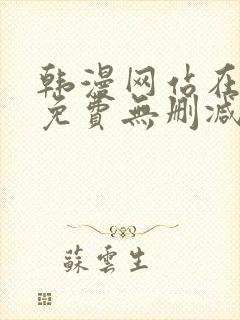 韩漫网站在
免費無删减
蘇雲生